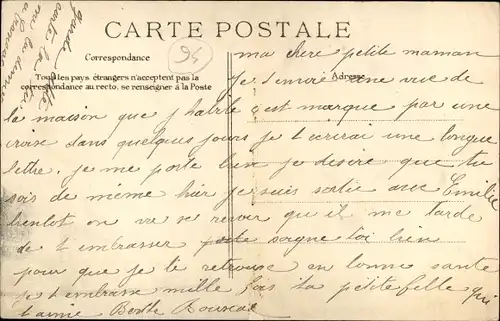 CARTE POSTALE
Correspondance
Tous les pays étrangers n'acceptent pas la
correspondance au recto, se renseigner à la Poste
Adresse
94
garde
carte
ma chere petite maman
Je t'envoie une vue de
la maison que j habite c'est marque par une
croise dans quelques jours je t ecrirai une longue
lettre, je me porte bien je desire que tu
sois de même hier je suis sortie avec Emilie
bientot on va se revoir qu il me tarde
de t embrasser porte soigne toi bien
pour que je te retrouve en bonne sante
je t embrasse mille fois ta petite fille qui
t'aime Berthe